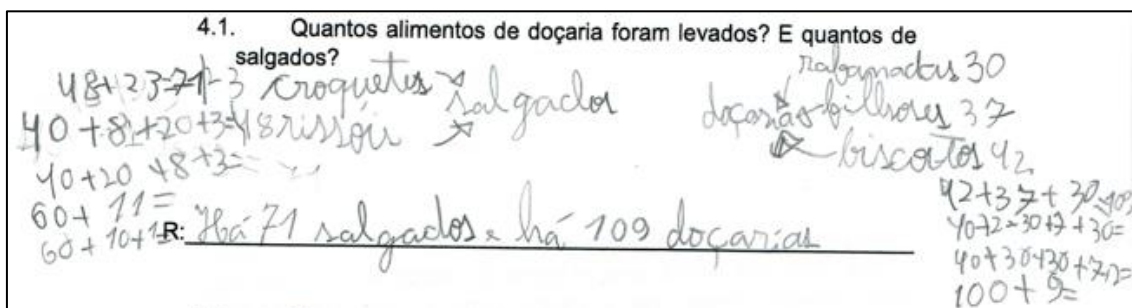 4.1. Quantos alimentos de doçaria foram levados? E quantos de
salgados?
48+23=71
23 croquetes
salgados
40+8+20+3=
48 rissóis
40+20+8+3=
60+11=
60+10+1=
rabanadas 30
doçarias
filhoses 37
biscoitos 42
42+37+30=109
40+2+30+7+30=
40+30+30+7+2=
100+9=
R: Há 71 salgados e há 109 doçarias